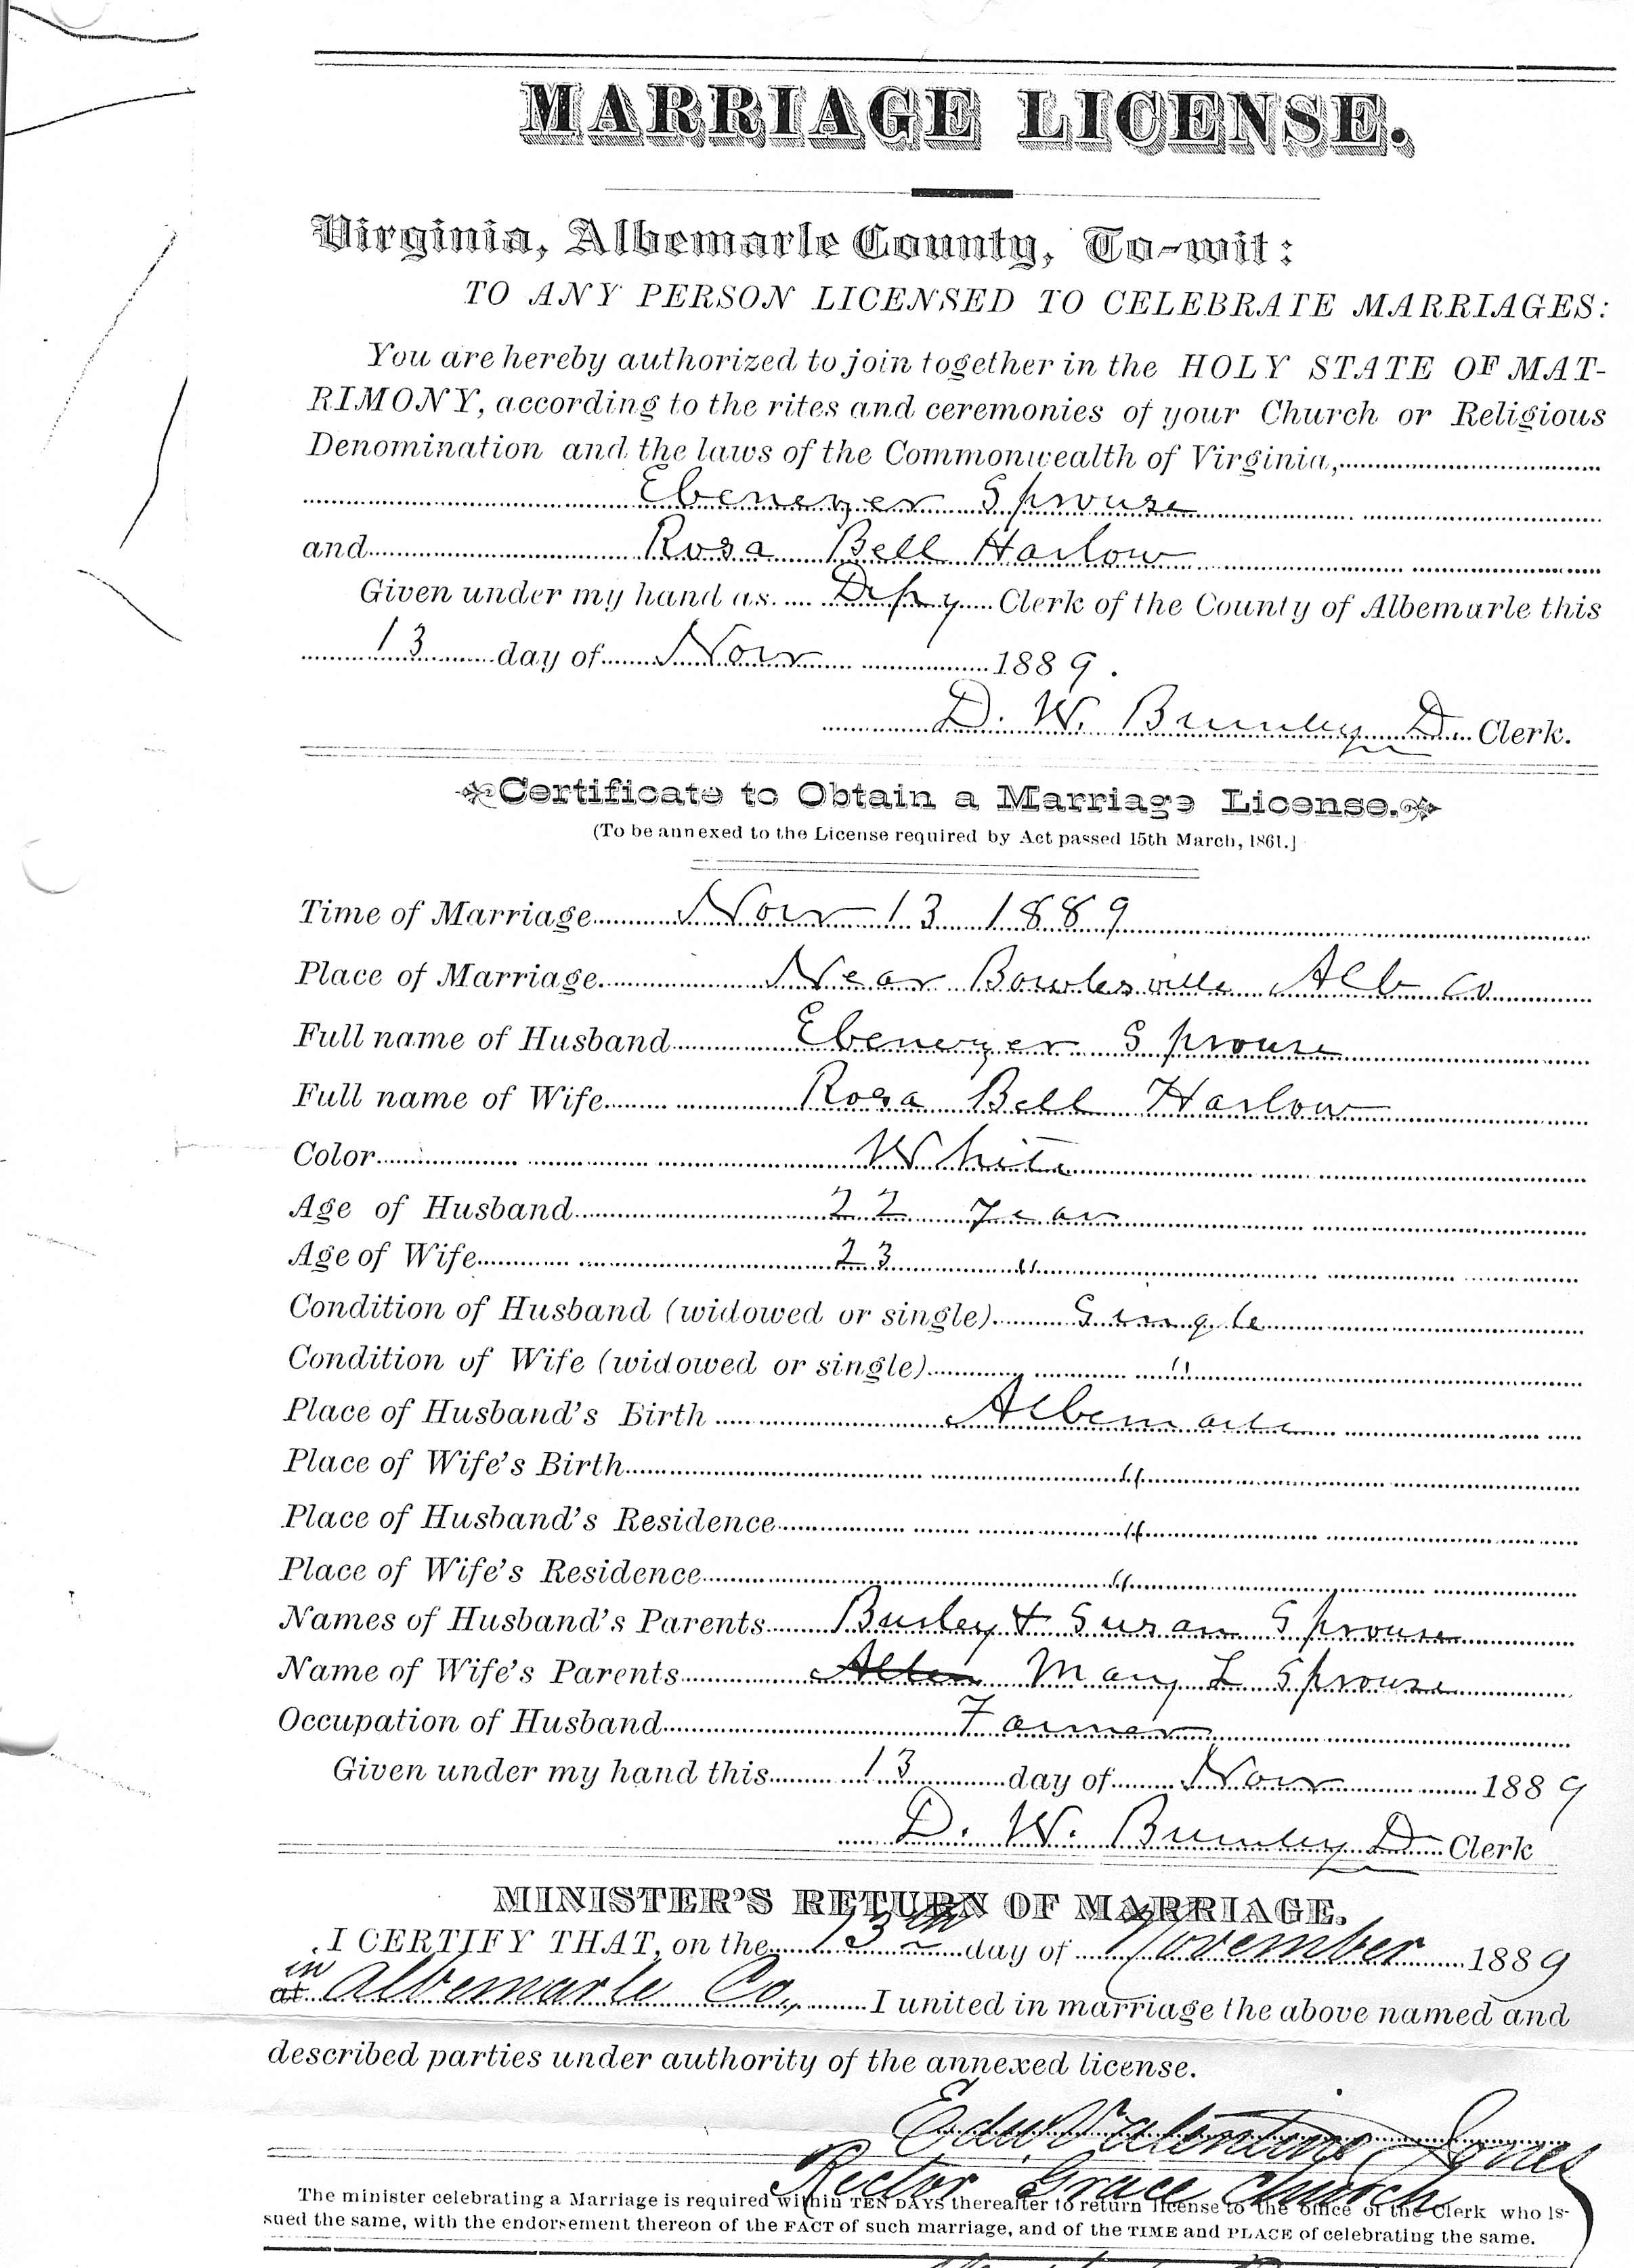 MARRIAGE LICENSE.
Virginia, Albemarle County, To-wit:
TO ANY PERSON LICENSED TO CELEBRATE MARRIAGES:
You are hereby authorized to join together in the HOLY STATE OF MAT-
RIMONY, according to the rites and ceremonies of your Church or Religious
Denomination and the laws of the Commonwealth of Virginia,
Ebenezer Sprouse
and Rosa Bell Harlow
Given under my hand as Dpy Clerk of the County of Albemarle this
13 day of Nov 1889.
D. W. Burnley D. Clerk.
Certificate to Obtain a Marriage License.
(To be annexed to the License required by Act passed 15th March, 1861.]
Time of Marriage Nov 13 1889
Place of Marriage. Near Bowlesville Alb Co
Full name of Husband Ebenezer Sprouse
Full name of Wife Rosa Bell Harlow
Color White
Age of Husband 22 year
Age of Wife 23 "
Condition of Husband (widowed or single) Single
Condition of Wife (widowed or single) "
Place of Husband's Birth Albemarle
Place of Wife's Birth "
Place of Husband's Residence "
Place of Wife's Residence "
Names of Husband's Parents Burley & Susan Sprouse
Name of Wife's Parents Mary L Sprouse
Occupation of Husband Farmer
Given under my hand this 13 day of Nov 1889
D. W. Burnley D Clerk
MINISTER'S RETURN OF MARRIAGE.
I CERTIFY THAT, on the 13th day of November 1889
in
at Albemarle Co., I united in marriage the above named and
described parties under authority of the annexed license.
Edw Valentine Jones
Rector Grace Church
The minister celebrating a Marriage is required within TEN DAYS thereafter to return license to the office of the Clerk who is-
sued the same, with the endorsement thereon of the FACT of such marriage, and of the TIME and PLACE of celebrating the same.